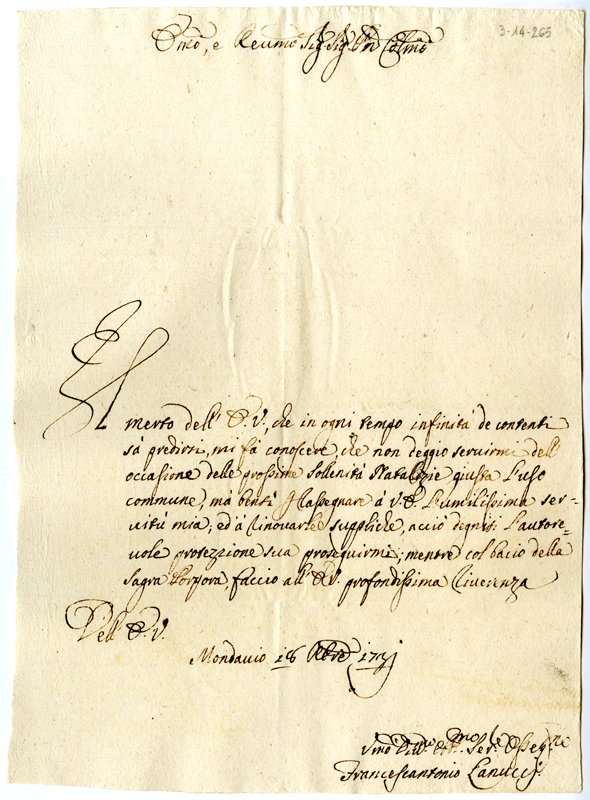 3-14-265
Emo, e Reumo Sig. Sig. Pñ Colmo
Il
merto dell' E.V., che in ogni tempo infinità de contenti
sà predirsi, mi fà conoscere, che non deggio seruirmi dell'
occasione delle prossime Sollenità Natalizie giusta l'uso
commune, mà bensì Rassegnare à V.E. l'umilissima ser-
uitù mia; ed à rinouarle suppliche, acciò degnisi l'autore-
uole protezzione sua proseguirmi; mentre col bacio della
Sagra Porpora faccio all' E.V. profondissima riuerenza
Dell' E.V.
Mondauio 18 Xbre
Vmo Ser.
Francescantonio Lanucci